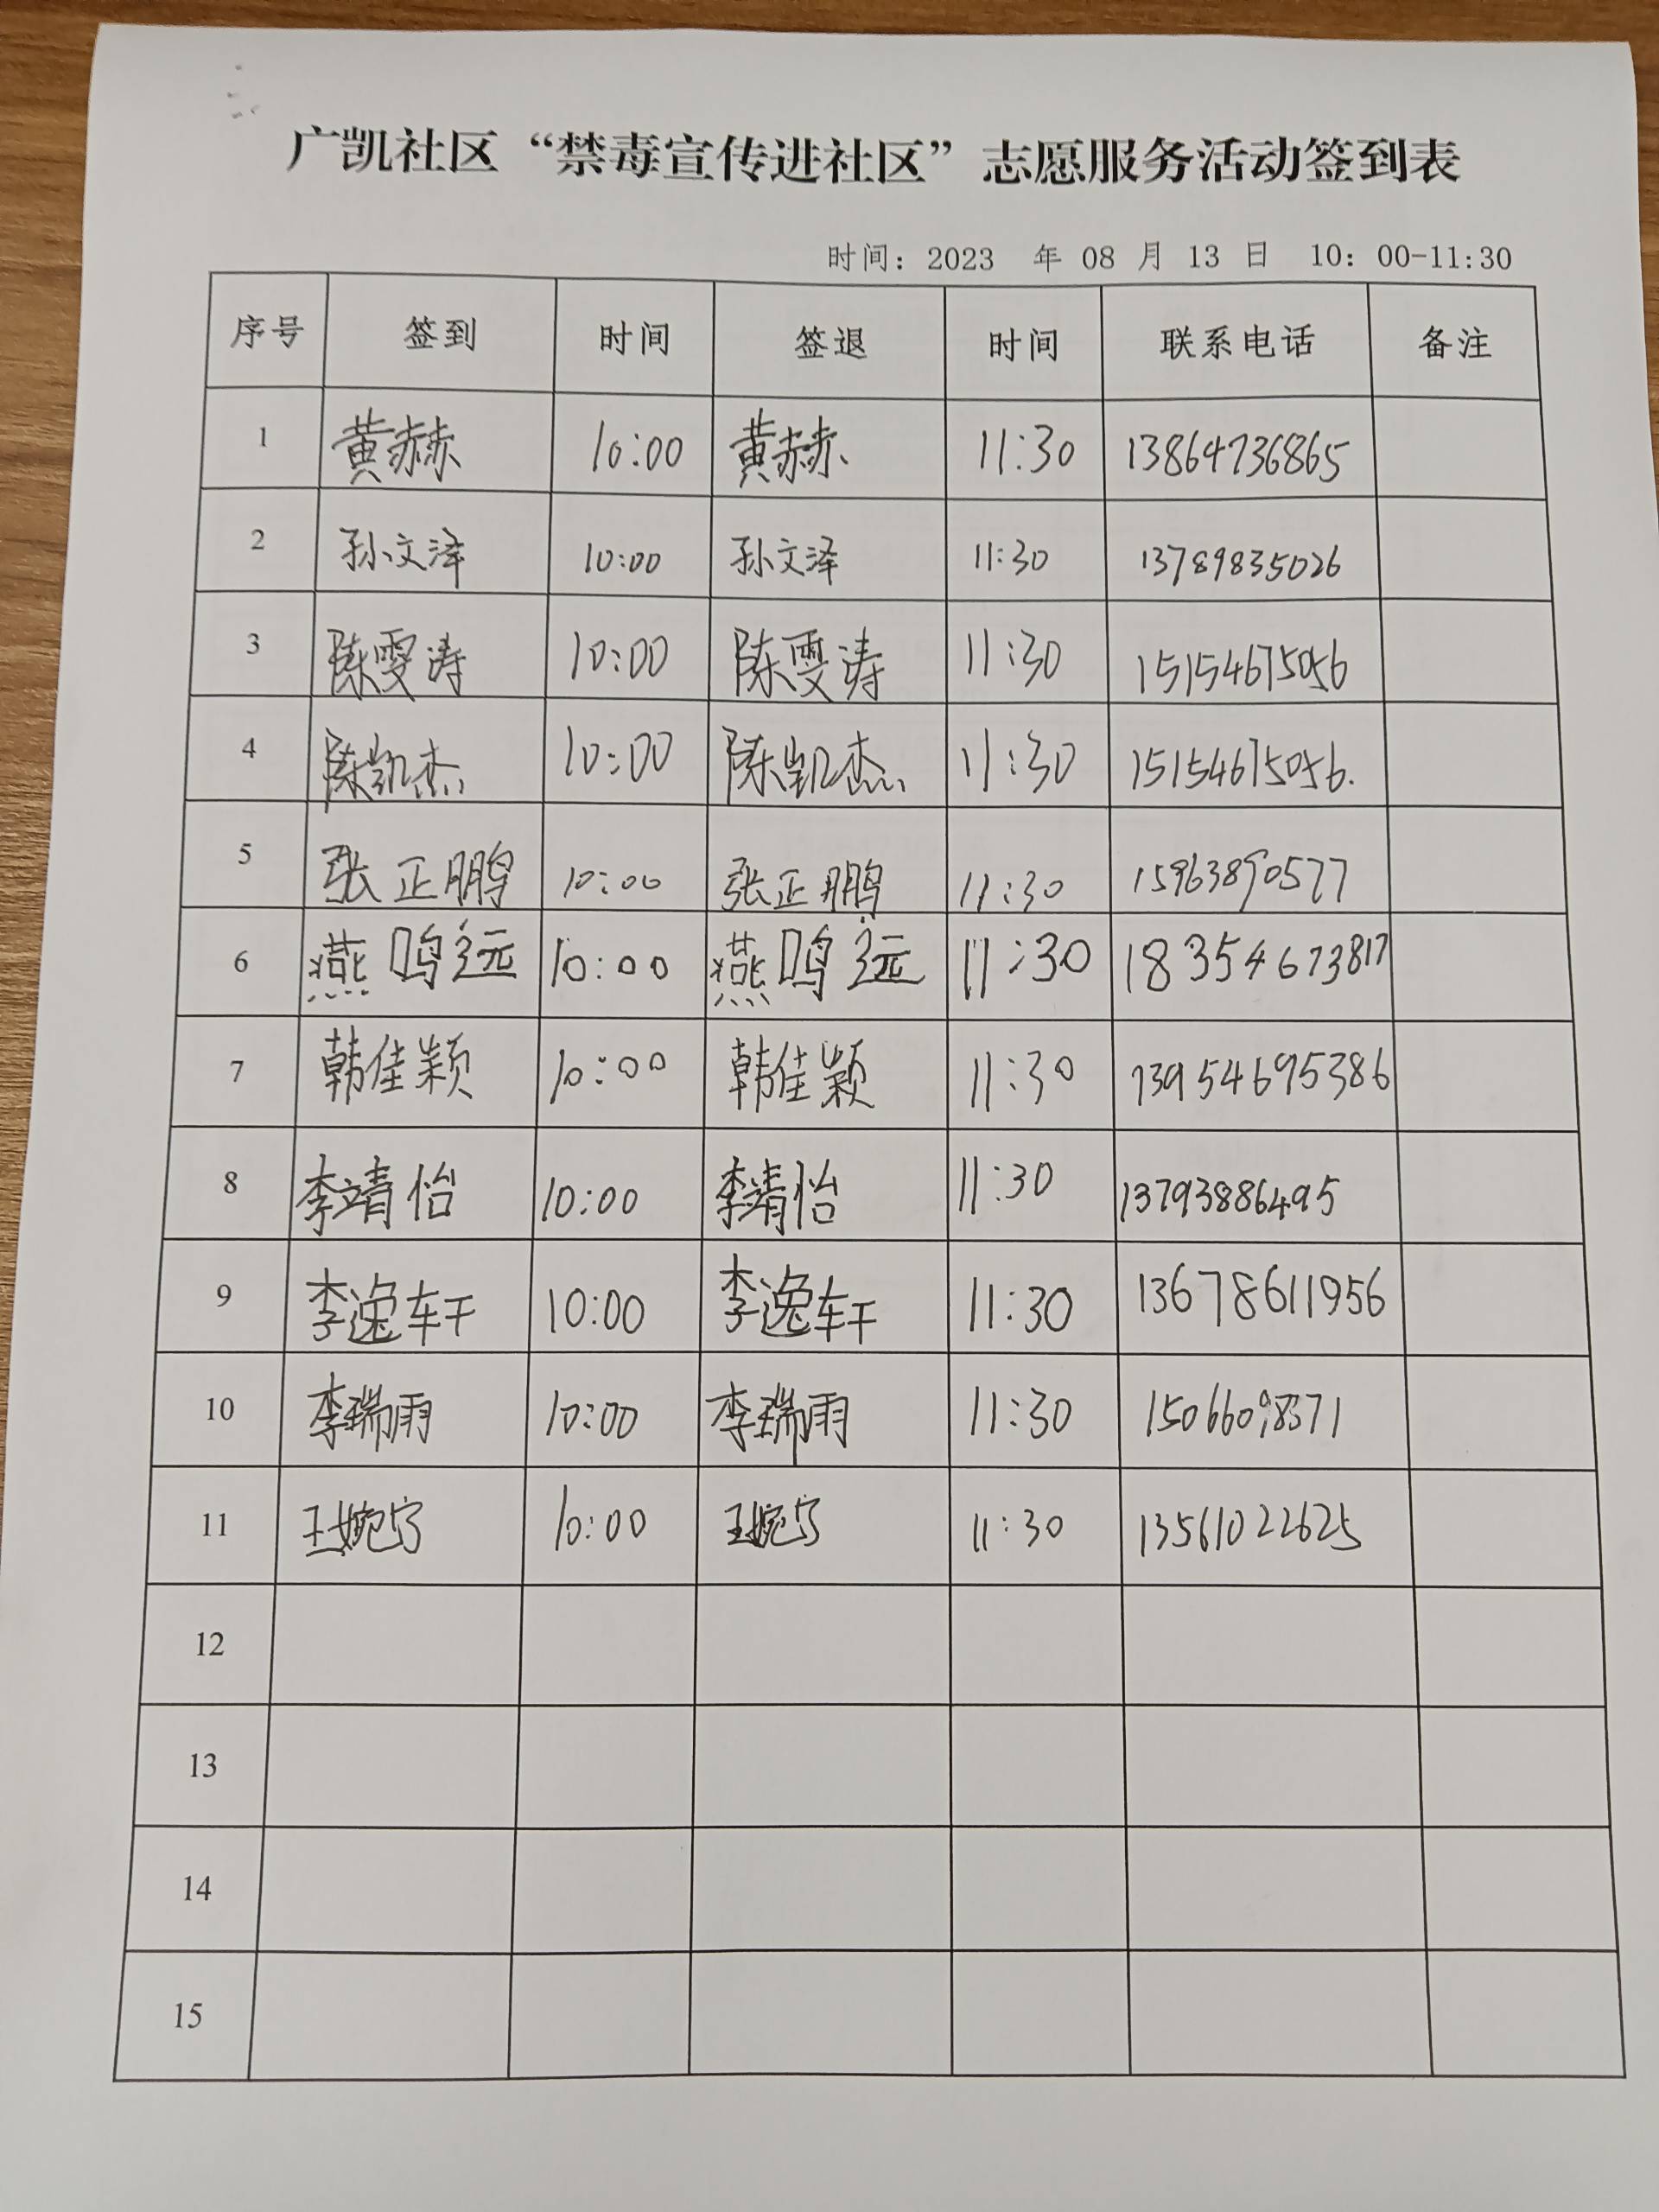 广凯社区“禁毒宣传进社区”志愿服务活动签到表
时间：2023 年 08 月 13 日 10：00-11:30
序号 签到 时间 签退 时间 联系电话 备注
1 黄赫 10:00 黄赫 11:30 13864736865
2 孙文泽 10:00 孙文泽 11:30 13789835026
3 陈雯涛 10:00 陈雯涛 11:30 15154675056
4 陈凯杰 10:00 陈凯杰 11:30 15154675056.
5 张正鹏 10:00 张正鹏 11:30 15963890577
6 燕鸣远 10:00 燕鸣远 11:30 18354673817
7 韩佳颖 10:00 韩佳颖 11:30 13954695386
8 李靖怡 10:00 李靖怡 11:30 13793886495
9 李逸轩 10:00 李逸轩 11:30 13678611956
10 李瑞雨 10:00 李瑞雨 11:30
11 王婉宁 10:00 王婉宁 11:30 13561022625
12
13
14
15